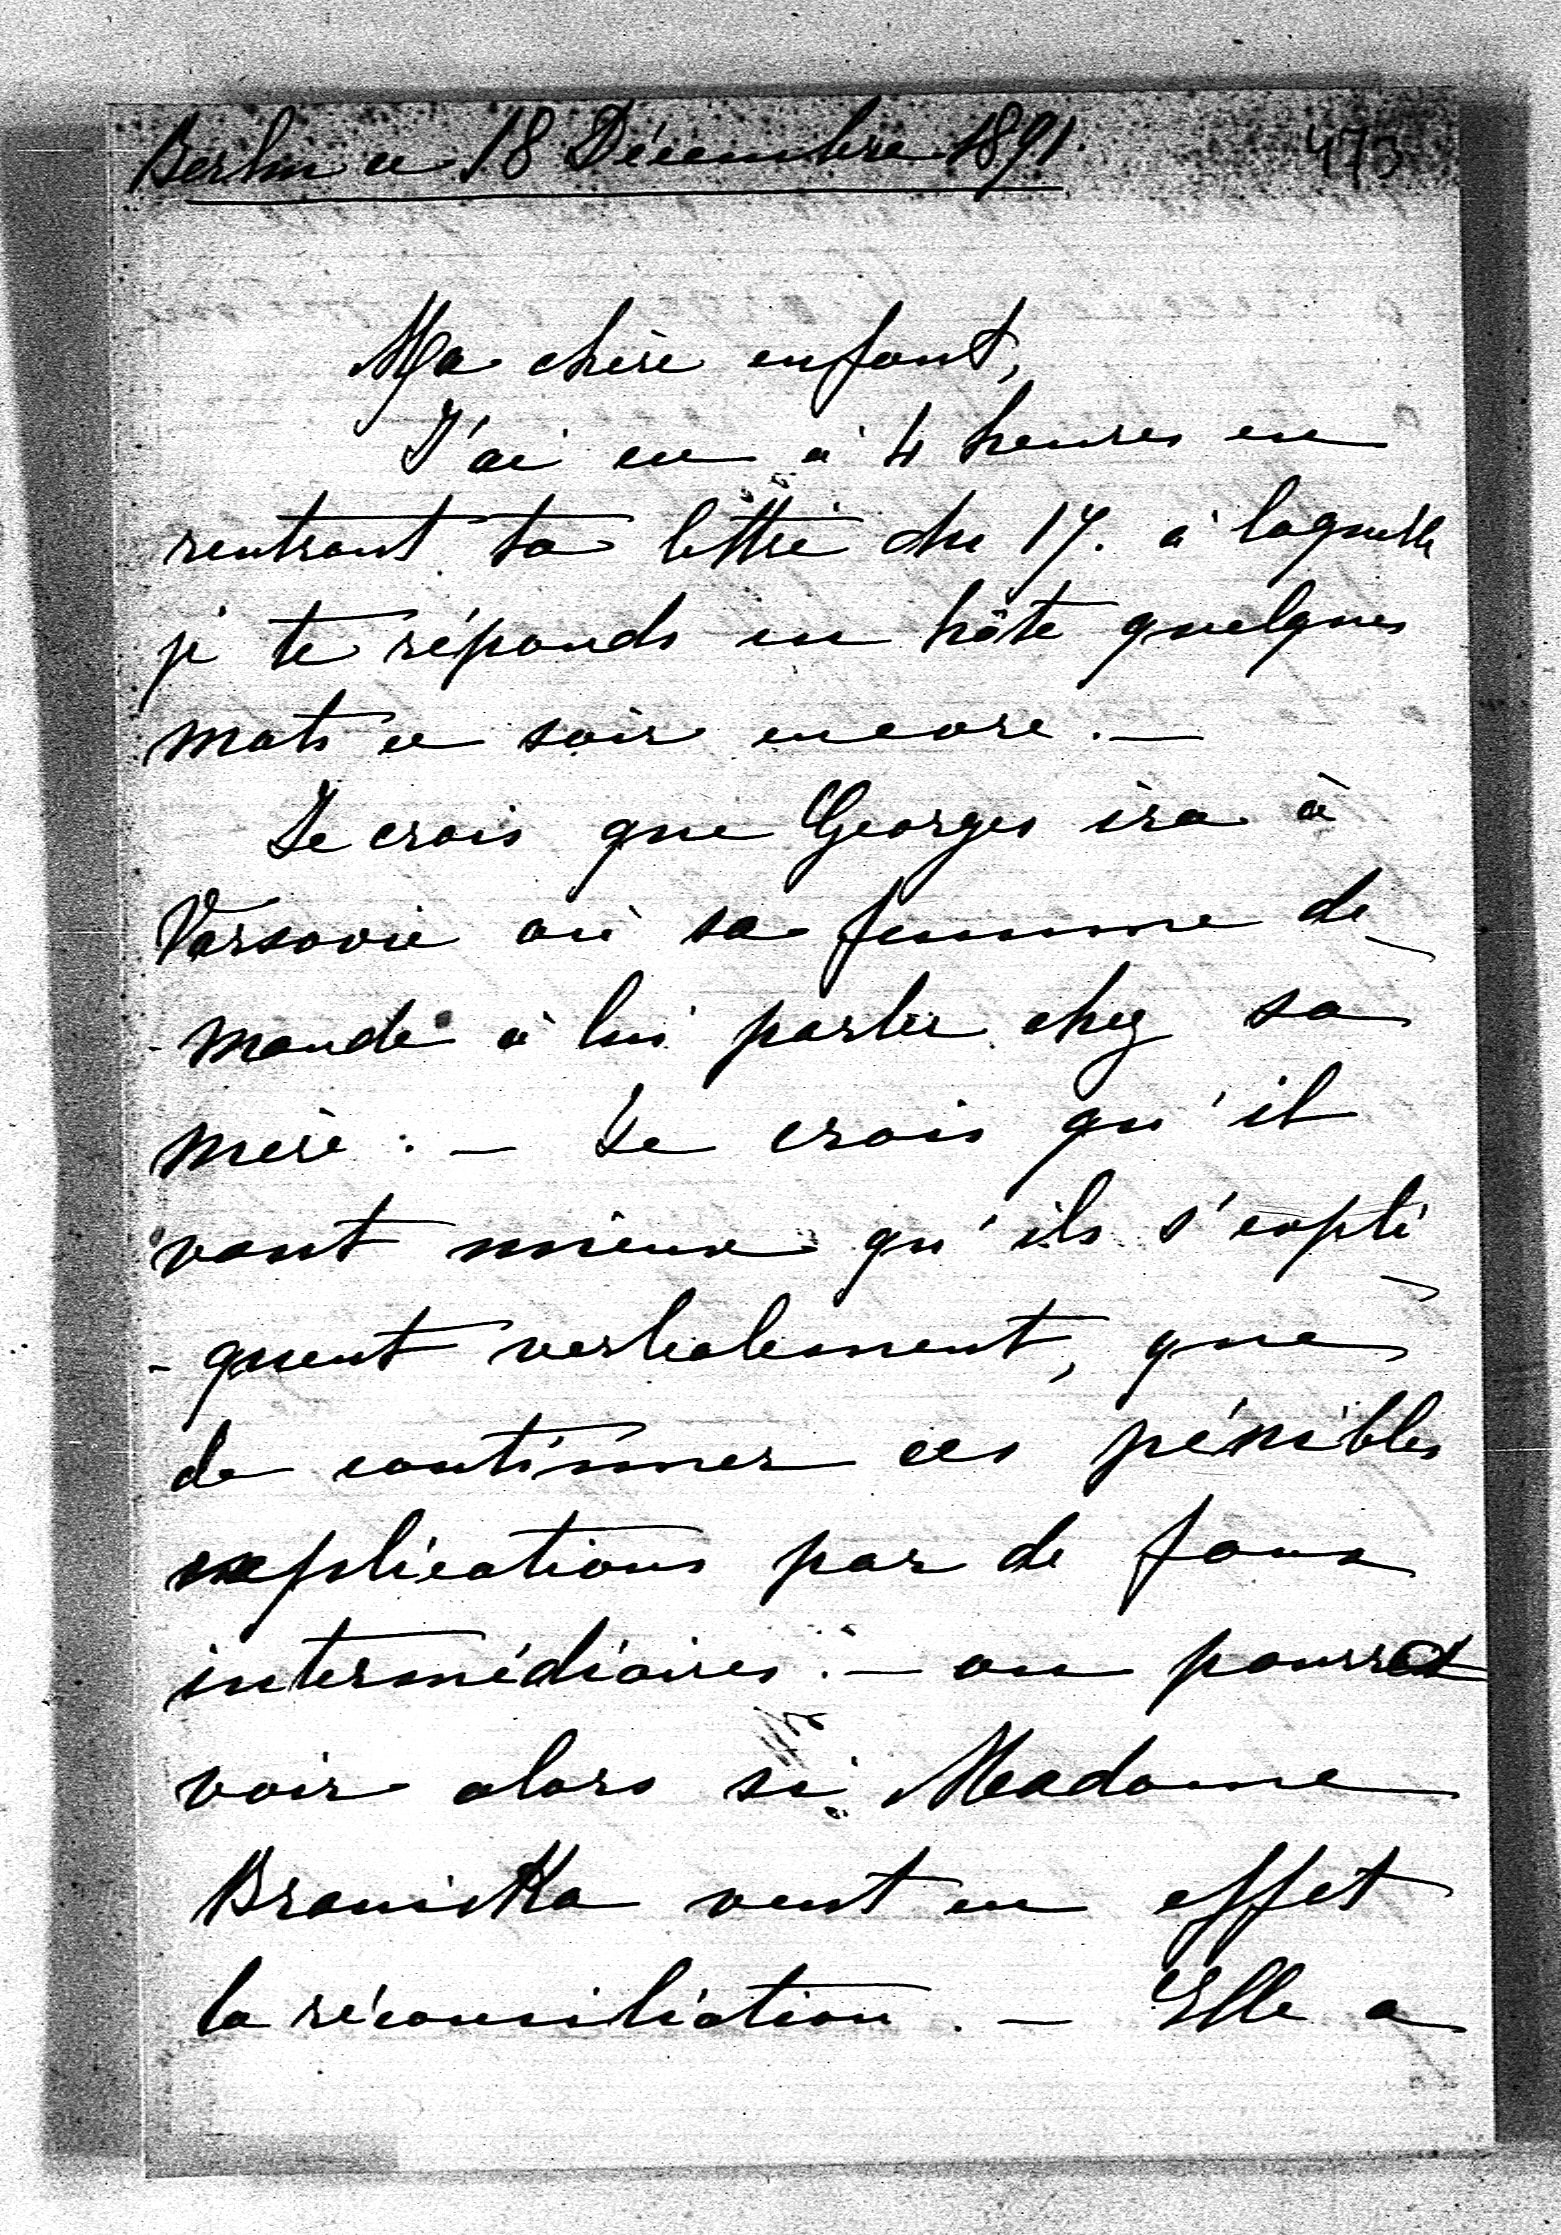 Berlin ce 18 Décembre 1891.
473
Ma chère enfant,
J'ai eu à 4 heures en
rentrant ta lettre du 17. à laquelle
je te réponds en hâte quelques
mots ce soir encore. —
Je crois que Georges ira à
Varsovie où sa femme de-
-mande à lui parler chez sa
mère. — Je crois qu'il
vaut mieux qu'ils s'expli-
-quent verbalement, que
de continuer ces pénibles
explications par de faux
intermédiaires. — on pourra
voir alors si Madame
Branicka veut en effet
la réconciliation. — Elle a